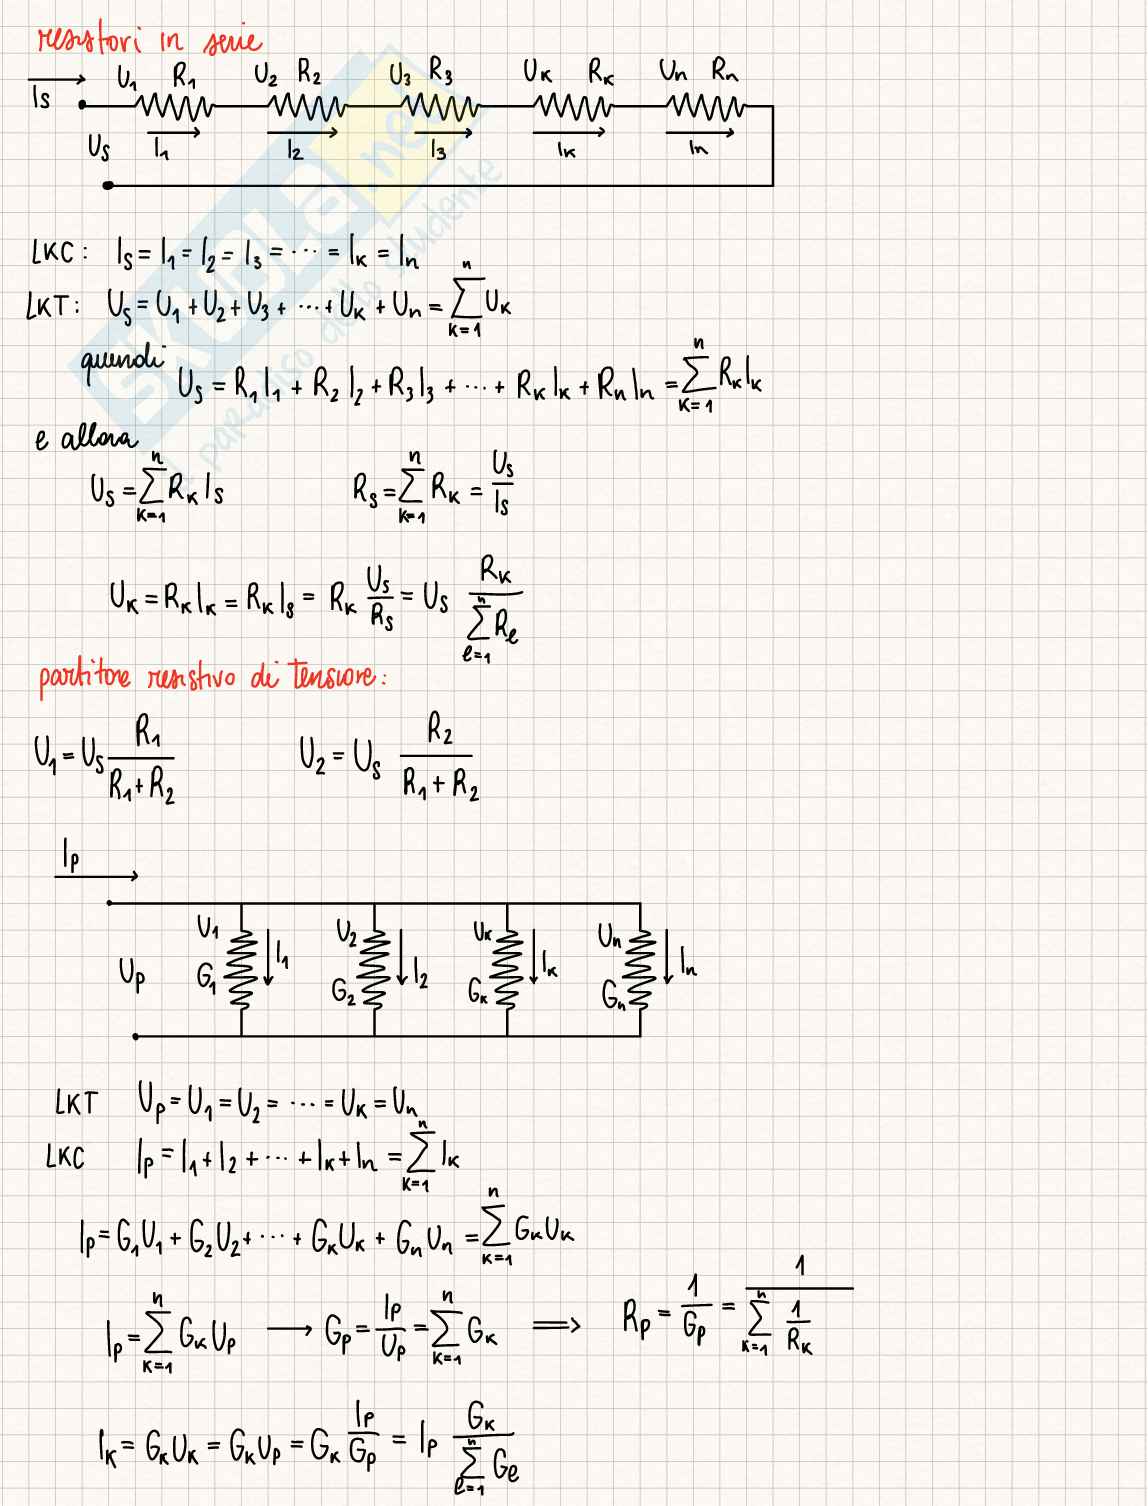 resistori in serie
U₁ R₁ U₂ R₂ U₃ R₃ Uₖ Rₖ Uₙ Rₙ
Iₛ
Uₛ I₁ I₂ I₃ Iₖ Iₙ
LKC: Iₛ = I₁ = I₂ = I₃ = ··· = Iₖ = Iₙ
LKT: Uₛ = U₁ + U₂ + U₃ + ··· + Uₖ + Uₙ = ∑ₖ₌₁ⁿ Uₖ
quindi Uₛ = R₁I₁ + R₂I₂ + R₃I₃ + ··· + RₖIₖ + RₙIₙ = ∑ₖ₌₁ⁿ RₖIₖ
e allora
Uₛ = ∑ₖ₌₁ⁿ Rₖ Iₛ Rₛ = ∑ₖ₌₁ⁿ Rₖ = Uₛ/Iₛ
Uₖ = RₖIₖ = RₖIₛ = Rₖ Uₛ/Rₛ = Uₛ Rₖ/∑ₗ₌₁ⁿ Rₗ
partitore resistivo di tensione:
U₁ = Uₛ R₁/(R₁+R₂) U₂ = Uₛ R₂/(R₁+R₂)
Iₚ
U₁ U₂ Uₖ Uₙ
Uₚ G₁ I₁ G₂ I₂ Gₖ Iₖ Gₙ Iₙ
LKT Uₚ = U₁ = U₂ = ··· = Uₖ = Uₙ
LKC Iₚ = I₁ + I₂ + ··· + Iₖ + Iₙ = ∑ₖ₌₁ⁿ Iₖ
Iₚ = G₁U₁ + G₂U₂ + ··· + GₖUₖ + GₙUₙ = ∑ₖ₌₁ⁿ GₖUₖ
Iₚ = ∑ₖ₌₁ⁿ GₖUₚ ⟶ Gₚ = Iₚ/Uₚ = ∑ₖ₌₁ⁿ Gₖ ⟹ Rₚ = 1/Gₚ = 1/(∑ₖ₌₁ⁿ 1/Rₖ)
Iₖ = GₖUₖ = GₖUₚ = Gₖ Iₚ/Gₚ = Iₚ Gₖ/∑ₗ₌₁ⁿ Gₗ
SKUOLA.net
paradiso dello studente